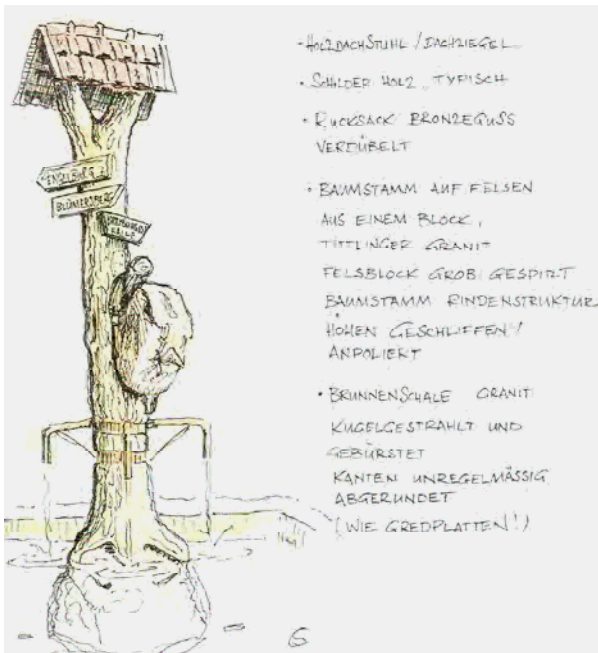 - HOLZDACHSTUHL / DACHZIEGEL
• SCHILDER HOLZ, TYPISCH
• RUCKSACK BRONZEGUSS
VERDÜBELT
• BAUMSTAMM AUF FELSEN
AUS EINEM BLOCK,
TITTLINGER GRANIT
FELSBLOCK GROB GESPITZT
BAUMSTAMM RINDENSTRUKTUR
HÖHEN GESCHLIFFEN /
ANPOLIERT
• BRUNNENSCHALE GRANIT
KUGELGESTRAHLT UND
GEBÜRSTET
KANTEN UNREGELMÄSSIG
ABGERUNDET
(WIE GREDPLATTEN!)
ENGELBURG
BLÜMERSBERG
6